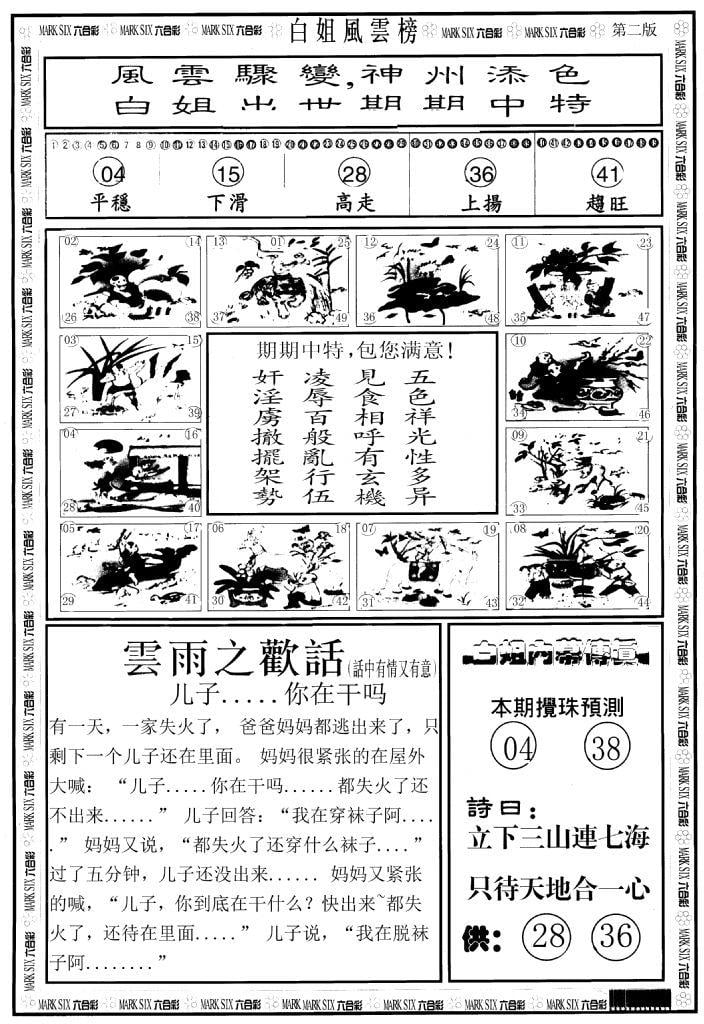 MARK SIX 六合彩 MARK SIX 六合彩 MARK SIX 六合彩 白姐風雲榜 MARK SIX 六合彩 MARK SIX 六合彩 第二版
風雲驟變,神州添色
白姐出世期期中特
04 15 28 36 41
平穩 下滑 高走 上揚 趨旺
02 14 26 38
13 01 25 37 49
12 24 36 48
11 23 35 47
03 15 27 39
10 22 34 46
04 16 28 40
09 21 33 45
05 17 29 41
06 18 30 42
07 19 31 43
08 20 32 44
期期中特,包您满意!
五色祥光性多异
見食相呼有玄機
凌辱百般亂行伍
奸淫虜撤擺架勢
雲雨之歡話(話中有情又有意)
儿子.....你在干吗
有一天，一家失火了， 爸爸妈妈都逃出来了，只
剩下一个儿子还在里面。 妈妈很紧张的在屋外
大喊： “儿子.....你在干吗......都失火了还
不出来......” 儿子回答：“我在穿袜子阿....
.” 妈妈又说，“都失火了还穿什么袜子....”
过了五分钟，儿子还没出来...... 妈妈又紧张
的喊，“儿子，你到底在干什么？快出来~都失
火了，还待在里面.....” 儿子说，“我在脱袜
子阿........”
白姐内幕傳真
本期攪珠預測
04 38
詩曰：
立下三山連七海
只待天地合一心
供： 28 36
MARK SIX 六合彩 MARK SIX 六合彩 MARK SIX 六合彩 MARK SIX 六合彩 MARK SIX 六合彩 MARK SIX 六合彩 MARK SIX 六合彩